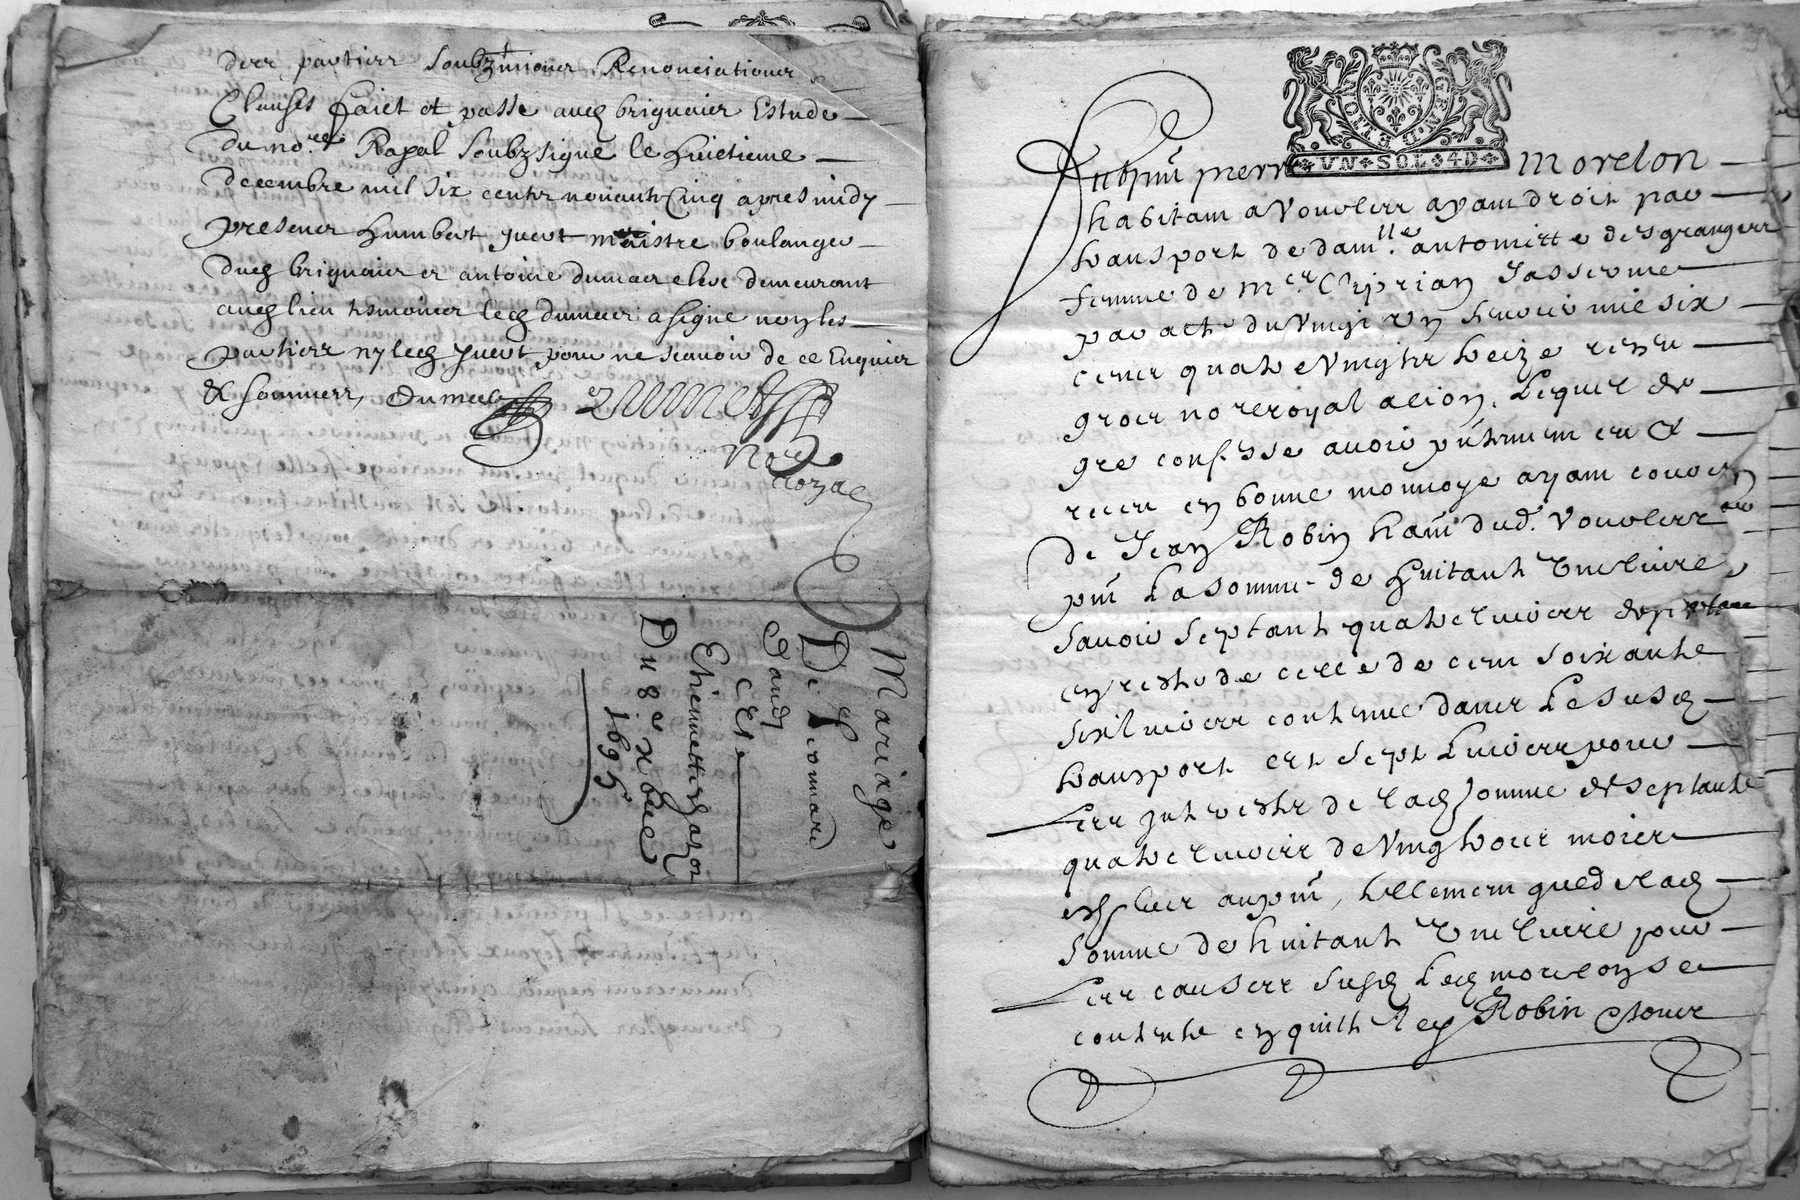 des parties soubzmions Renonciations
Clauses faict et passe aud brignais Estude
du no.re Royal soubzsigne le huictieme
decembre mil six cents nonante Cinq apres midy
presents humbert juent maistre boulanger
dud brignais et antoine dumas eleve demeurant
aud lieu tesmoins led dumas a signe non les
parties ny led juent pour ne scavoir de ce Enquis
& sommes, Dumas
no.re
royal
Mariage
De Leonard
Et
Du 8e xbre
1695
GEN.D.
LYON
VN SOL 4D
Au pnt pierre Morelon
habitant a Vourles ayant droit par
transport de dam.lle antoinette desgranges
femme de M.re Ciprian Jasserme
par acte du Vingt un fevrier mil six
cents quatre Vingts treize receu
gros no.re royal a lion, Lequel de
gre confesse avoir pntement eu &
receu en bonne monnoye ayant cours
de Jean Robin hant dud. Vourles
pnt La somme de huitante Une livre,
savoir septante quatre livres
en reste de celle de cent soixante
six livres contenue dans Le susd
transport et sept Livres pour
Les jnterests de lad somme de septante
quatre livres de Vingt trois mois
eschus au pnt, tellement que de lad
somme de huitante Une livre pour
Les causes susd Led morelon se
contente en quitte led Robin